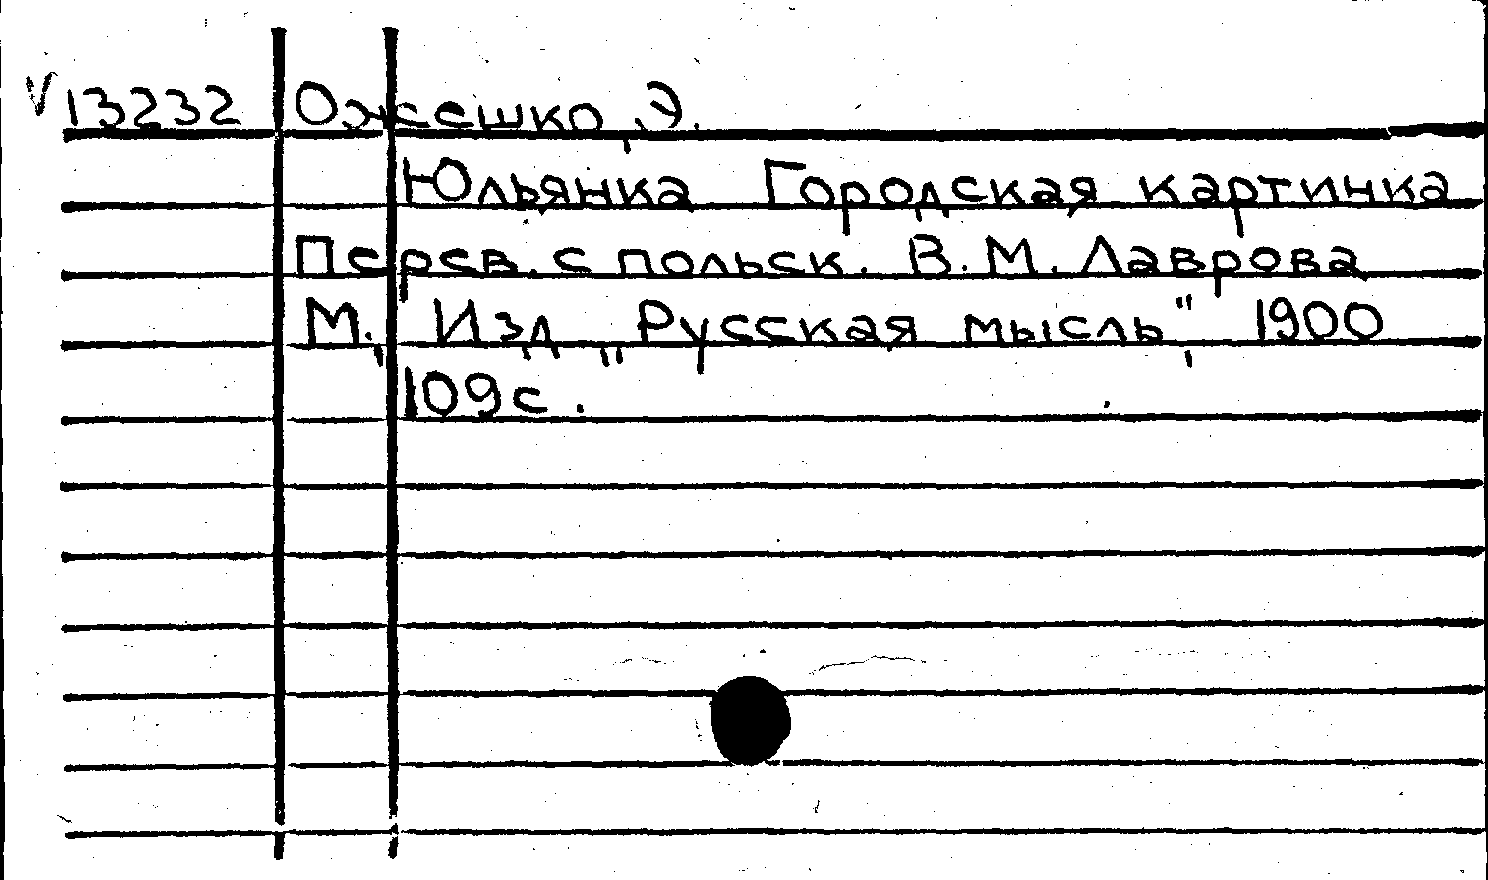 √ 13232 Ожешко, Э.
Юльянка Городская картинка
Перев. с польск. В. М. Лаврова
М., Изд „Русская мысль", 1900
109 с.